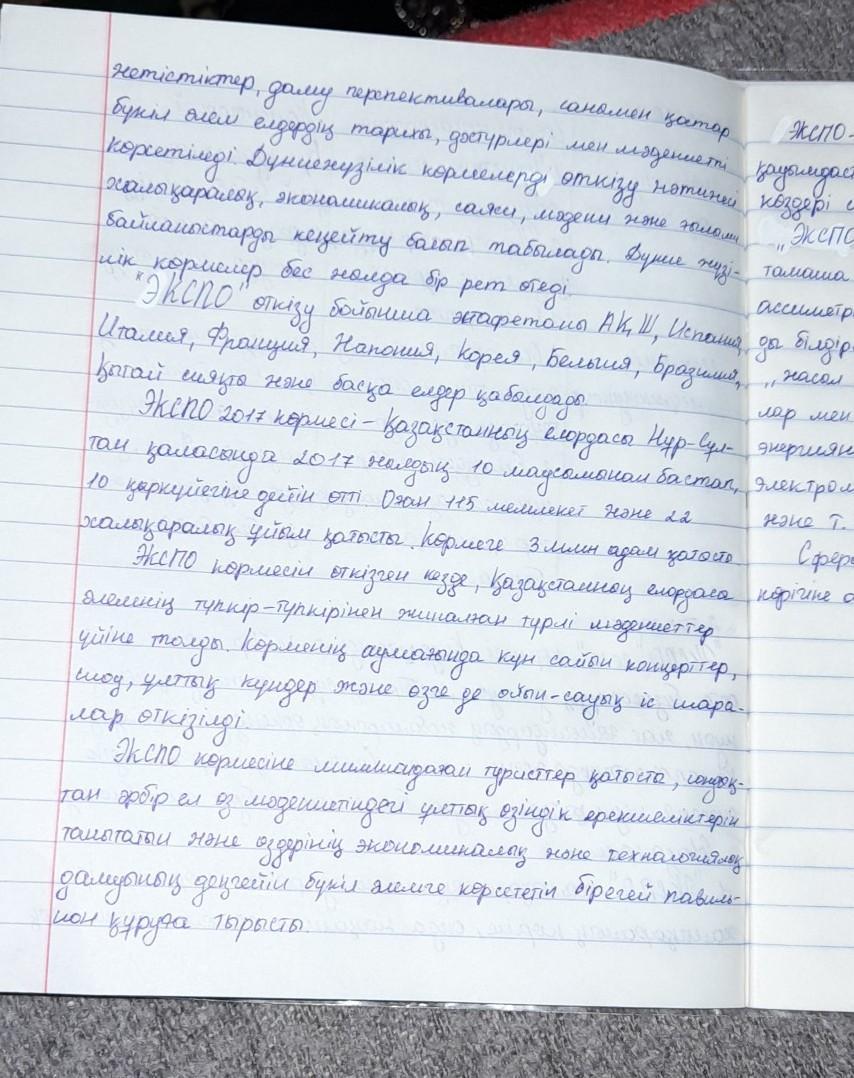 жетістіктер, даму перспективалары, сонымен қатар
бүкіл әлем елдердің тарихы, дәстүрлері мен мәдениеті
көрсетіледі. Дүниежүзілік көрмелерді өткізу нәтижесі
халықаралық, экономикалық, саяси, мәдени және ғылыми
байланыстарды кеңейту болып табылады. Дүние жүзі-
лік көрмелер бес жылда бір рет өтеді.
"ЭКСПО" өткізу бойынша эстафетаны АҚШ, Испания,
Италия, Франция, Жапония, Корея, Бельгия, Бразилия,
Қытай сияқты және басқа елдер қабылдады.
ЭКСПО 2017 көрмесі - Қазақстанның елордасы Нұр-Сұл-
тан қаласында 2017 жылдың 10 маусымынан бастап,
10 қыркүйегіне дейін өтті. Оған 115 мемлекет және 22
халықаралық ұйым қатысты. Көрмеге 3 млн адам қатысты
ЭКСПО көрмесін өткізген кезде, Қазақстанның елордасы
әлемнің түпкір-түпкірінен жиналған түрлі мәдениеттер
үйіне толды. Көрменің аумағында күн сайын концерттер,
шоу, ұлттық күндер және өзге де ойын-сауық іс шара-
лар өткізілді.
ЭКСПО көрмесіне миллиондаған туристтер қатысты, сондық-
тан әрбір ел өз мәдениетіндегі ұлттық өзіндік ерекшеліктерін
танытатын және өздерінің экономикалық және технологиялық
дамуының деңгейін бүкіл әлемге көрсететін бірегей павиль-
ион құруға тырысты.
ЭКСПО-
қауымдаст
көздері
"ЭКСПО
тамаша
ассиметр
ды білдір
"жасыл
лар мен
энергиян
электром
және т.
Сфер
көрігіне а